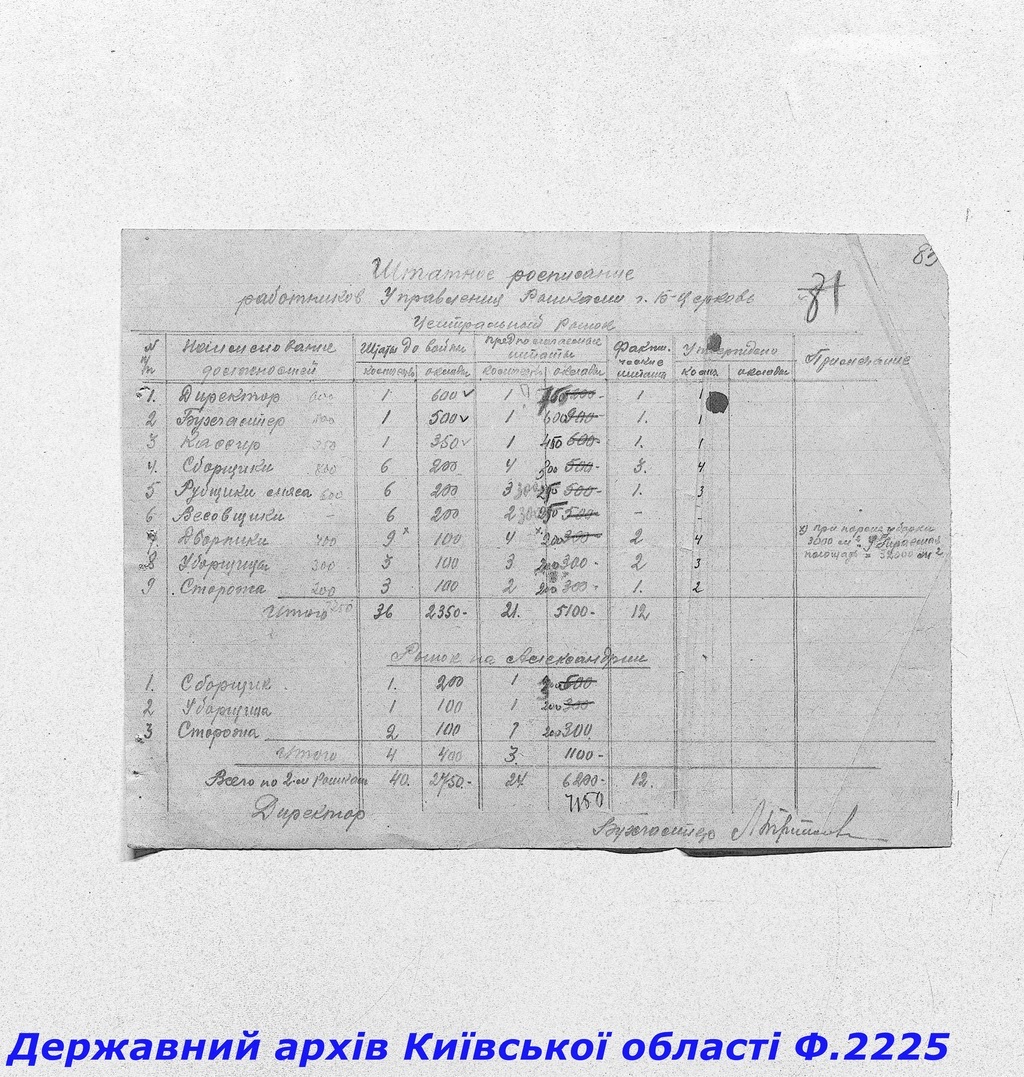 83
81
Штатное росписание
работников Управления Рынками г. Б-Церковь
Центральный рынок
N п/п Наименование должностей Штаты до войны Предполагаемые штаты Факти- ческие штаты Утверждено Примечание
колич. оклады колич. оклады колич. оклады
1. Директор 600 1 600 1 750 1. 1
2 Бухгалтер 500 1 500 1 600 900- 1. 1
3 Кассир 350 1 350 1 450 600- 1. 1
4. Сборщики 6 200 4 300 500- 3. 4
5 Рубщики мяса 600 6 200 3 300 250 500- 1. 3
6 Весовщики - 6 200 2 300 250 500- - -
7 Дворники 9x 100 4x 200 300- 2 4
8 Уборщица 300 3 100 3 200 300- 2 3
9 Сторожа 200 3 100 2 200 300- 1. 2
x) При норме уборки
3000 м²
площадь = 32000 м²
Итого 36 2350- 21. 5100- 12
Рынок на Александрии
1. Сборщик 1. 200 1 500
2 Уборщица 1 100 1 200 300
3 Сторожа 2 100 1 200 300
Итого 4 400 3. 1100-
Всего по 2-м рынкам 40. 2750- 24. 6200- 12.
7150
Директор
Бухгалтер
Державний архів Київської області Ф.2225